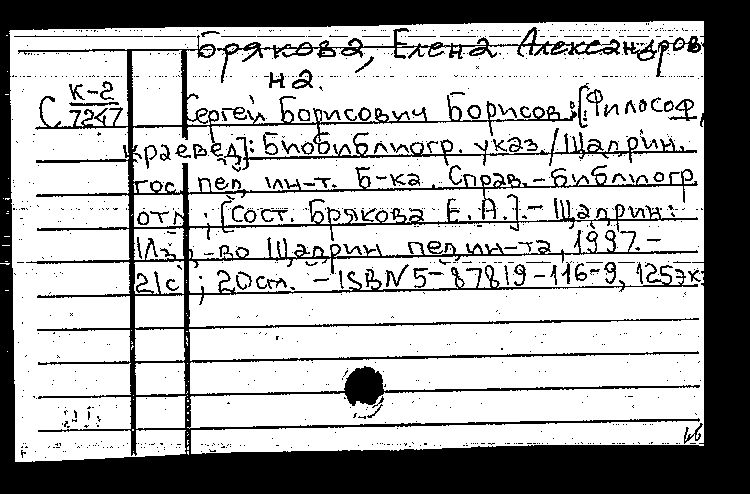 Брякова, Елена Александров
на.
С К-2
7247
Сергей Борисович Борисов: [Философ,
краевед]: Биобиблиогр. указ. / Шадрин.
гос. пед. ин-т. Б-ка. Справ.-библиогр.
отд ; [Сост. Брякова Е. А.]. - Шадрин:
Изд-во Шадрин. пед. ин-та, 1997. -
21с ; 20см. - ISBN 5-87819-116-9, 125экз